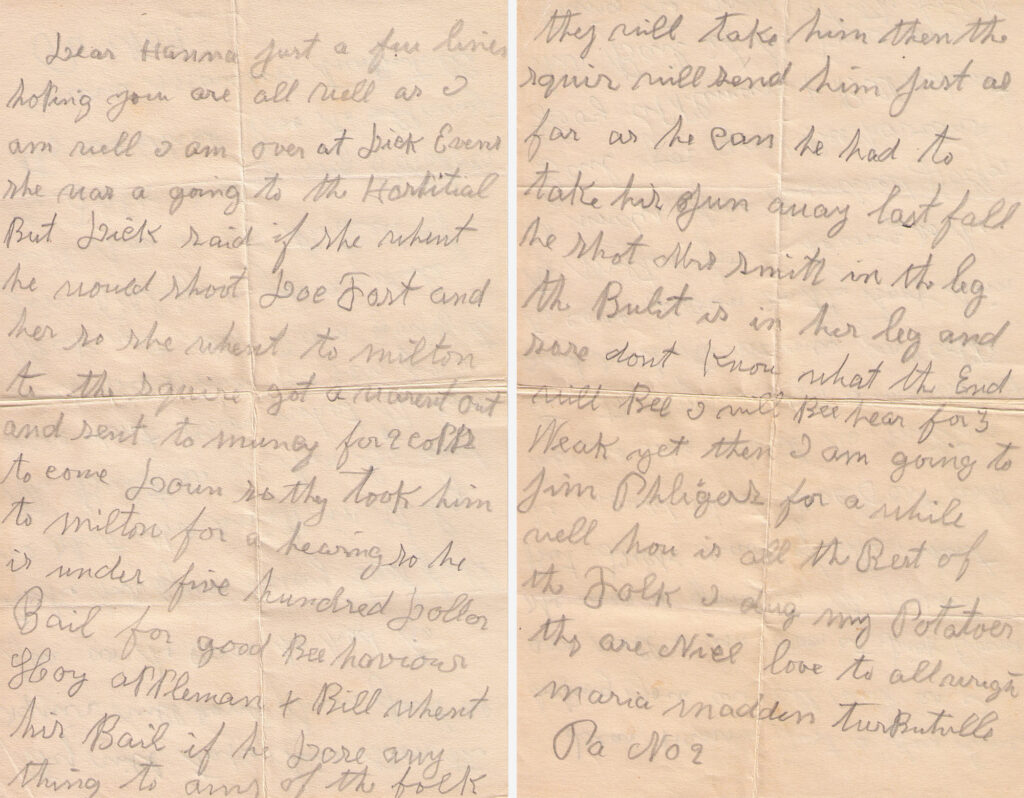 Dear Hanna just a few lines
hoping you are all well as I
am well I am over at Dick Evens
she was a going to the Hosbitial
But Dick said if she whent
he would shoot Doe Fost and
her so she whent to milton
to the squire got a warent out
and sent to muncy for 2 copps
to come Down so they took him
to milton for a hearing so he
is under five hundred Doller
Bail for good Bee haviour
Hoy appleman + Bill whent
his Bail if he Dose any
thing to any of the folk
they will take him then the
squir will send him just as
far as he can he had to
take his gun away last fall
he shot Mrs smith in the leg
the Bulit is in her leg and
sore dont Know what the End
will Bee I will Bee hear for 3
Weak yet then I am going to
Jim Phligers for a while
well how is all the Rest of
the Folk I dug my Potatoes
thy are Nice love to all wright
maria madden turButville
Pa No 2